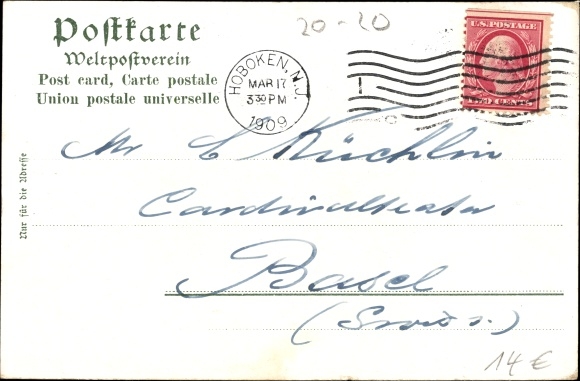 20-20
Postkarte
Weltpostverein
Post card, Carte postale
Union postale universelle
HOBOKEN, N.J.
MAR 17
3 30 PM
1909
U.S. POSTAGE
TWO CENTS
Nur für die Adresse
Mr C Küchlin
Basel
(Swiss.)
14 €